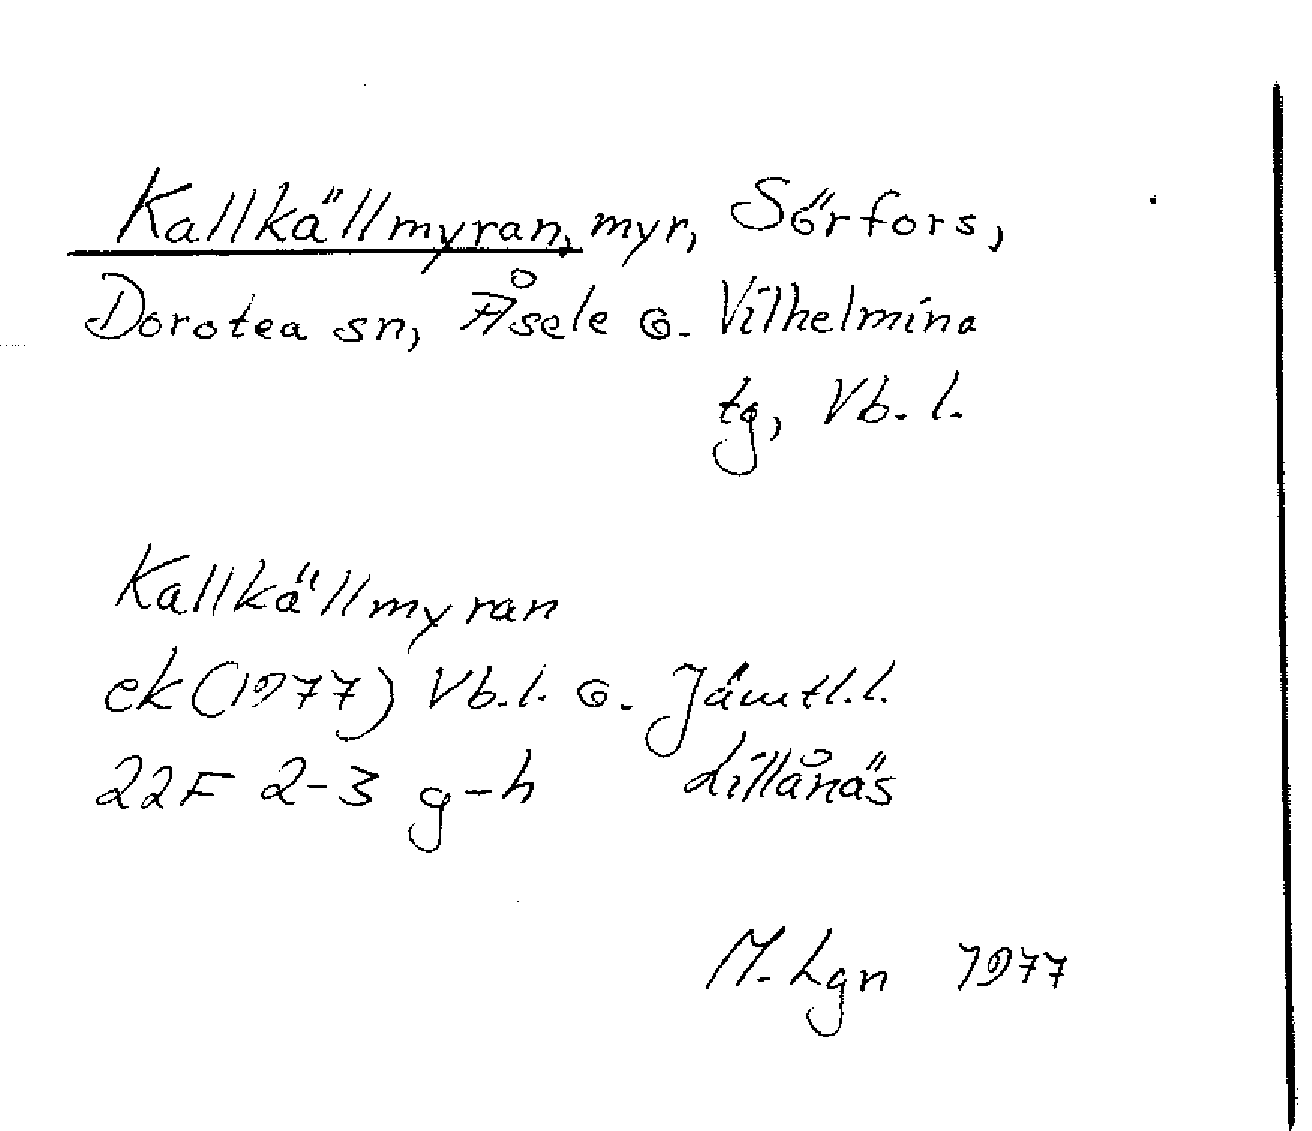 Kallkällmyran, myr, Sörfors,
Dorotea sn, Åsele o. Vilhelmina
tg, Vb. l.
Kallkällmyran
ek (1977) Vb. l. o. Jämtl. l.
22F 2-3 g-h Lillånäs
M. Lgn 1977